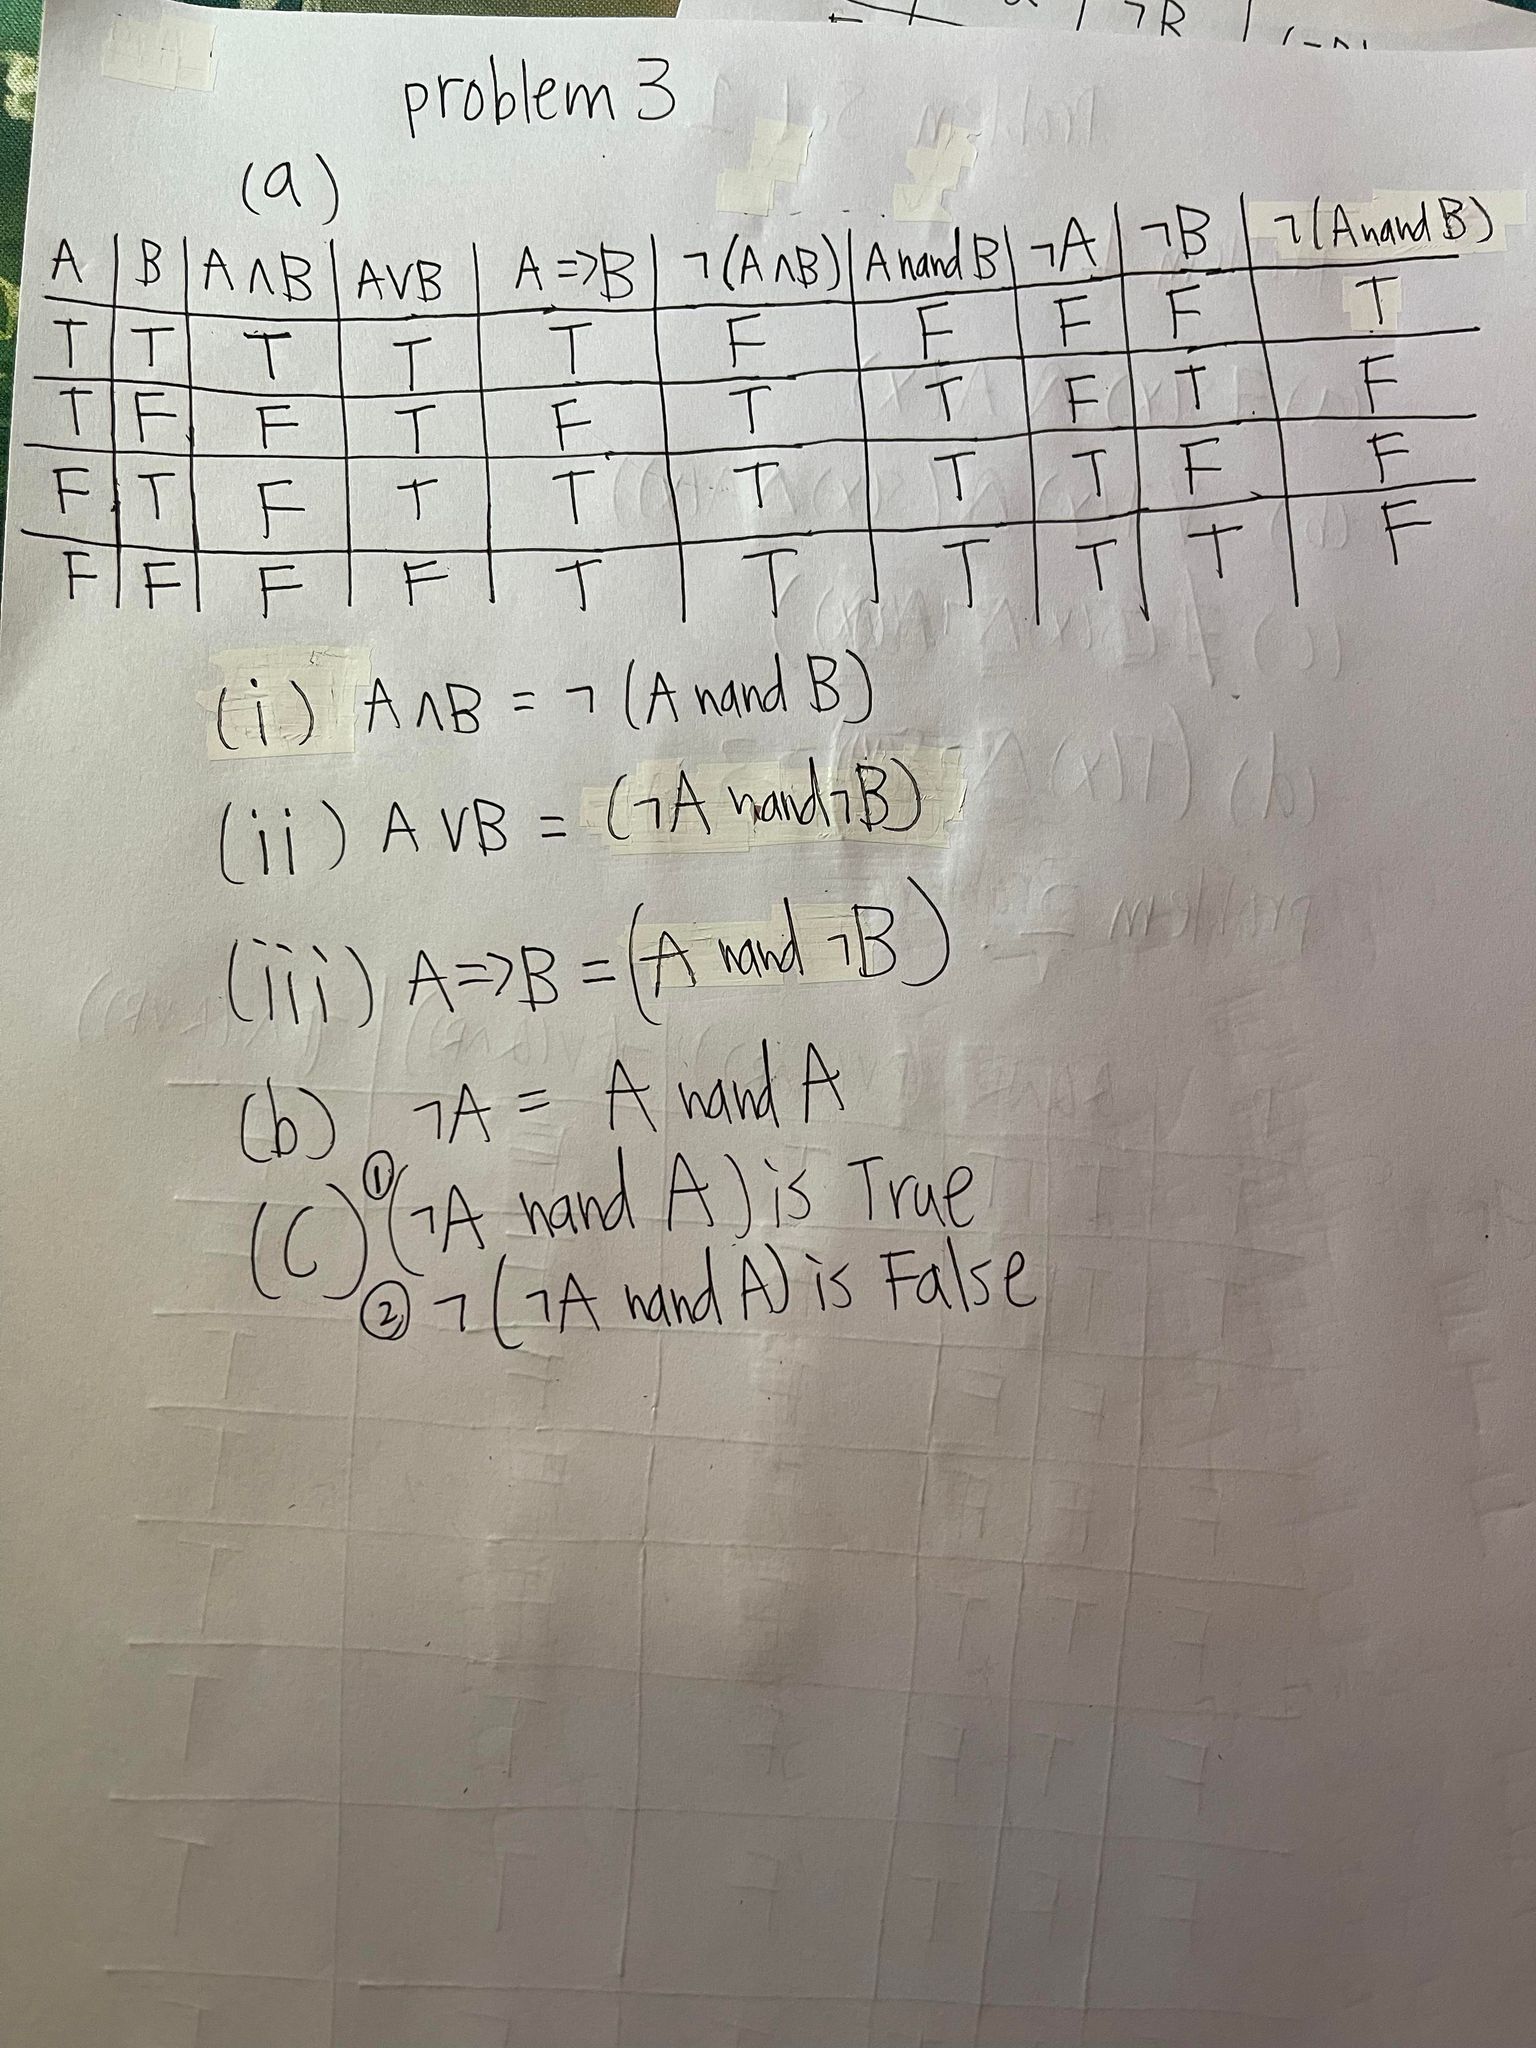 ¬R
problem 3
(a)
A | B | A∧B | A∨B | A=>B | ¬(A∧B) | A nand B | ¬A | ¬B | ¬(A nand B)
T | T | T | T | T | F | F | F | F | T
T | F | F | T | F | T | T | F | T | F
F | T | F | T | T | T | T | T | F | F
F | F | F | F | T | T | T | T | T | F
(i) A∧B = ¬(A nand B)
(ii) A∨B = (¬A nand ¬B)
(iii) A=>B = (A nand ¬B)
(b) ¬A = A nand A
(C) ① (¬A nand A) is True
② ¬(¬A nand A) is False